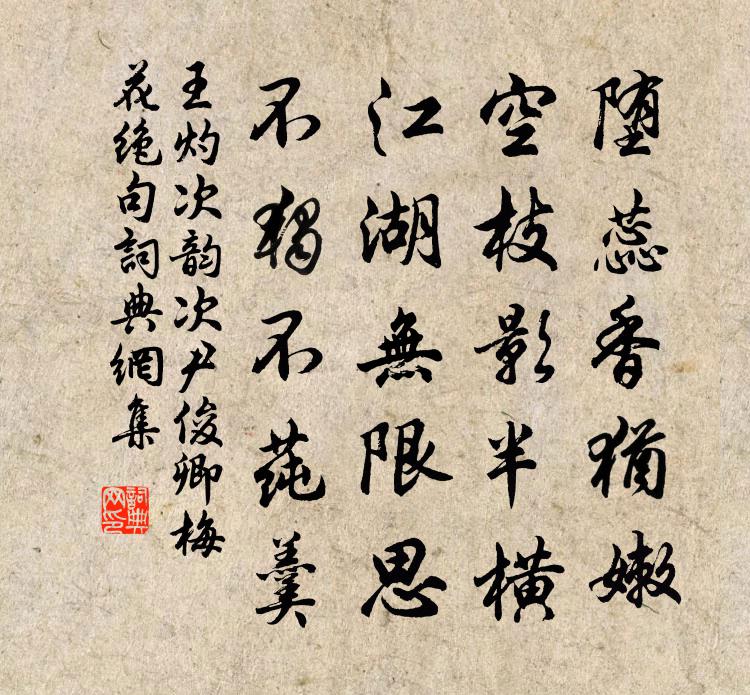 堕蕊香猶嫩
空枝影半横
江湖無限思
不獨不莼羹
王灼次韵次尹俊卿梅
花絶句詞典網集
詞典
网印